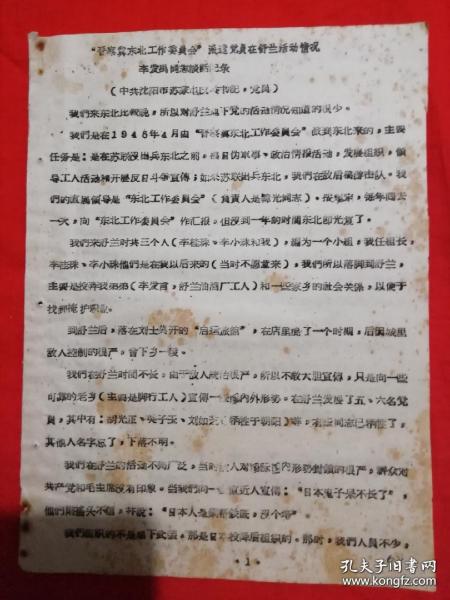 “晋察冀东北工作委员会”派遣党员在舒兰活动情况
李发 同志谈话记录
（中共沈阳市苏家屯区 书记，党员）
我们来东北比较晚，所以对舒兰地下党的活动情况知道的很少。
我们是在1945年4月由“晋察冀东北工作委员会”派到东北来的，主要
任务是：是在苏联没出兵东北之前，搞日伪军事、政治情报活动，发展组织，领
导工人活动和开展反日斗争宣传；如果苏联出兵东北，我们在敌后搞游击队。我
们的直属领导是“东北工作委员会”（负责人是 光同志）。按规定，每年两
一次，向“东北工作委员会”作汇报。但没到一年的时间东北即光复了。
我们来舒兰时共三个人（李桂珠、李小珠和我），编为一个小组，我任组长，
李桂珠、李小珠他们是在我以后来的（当时不愿意来），我们所以落脚到舒兰，
主要是投奔我弟弟（李发宣，舒兰油酒厂工人）和一些家乡的社会关系，以便于
找到掩护职业。
到舒兰后，落在刘士英开的“启运旅馆”，在店里住了一个时期，后因城里
敌人控制的很严，曾下乡一段。
我们在舒兰时间不长，由于敌人统治很严，所以不敢大胆宣传，只是向一些
可靠的老乡（主要是脚行工人）宣传一些国内外形势。在舒兰发展了五、六名党
员，其中有：胡光正、英子玉、刘如 （牺牲于朝阳）等，有些同志已牺牲了，
其他人名字忘了，下落不明。
我们在舒兰的活动不够广泛，当时敌人对国际国内形势封锁的很严，群众对
共产党和毛主席没有印象。当我们向一些接近人宣传：“日本鬼子是不长了”，
他们却摇头不信，并说：“日本人是铜帮铁底，没个塌”。
我们组织的不是地下武装，那是日本投降后组织的。那时，我们人员不少，
·1·
孔夫子旧书网